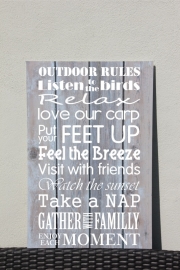 OUTDOOR RULES
Listen to the birds
Relax
love our carp
Put your FEET UP
Feel the Breeze
Visit with friends
Watch the sunset
Take a NAP
GATHER THE FAMILLY
ENJOY EACH MOMENT